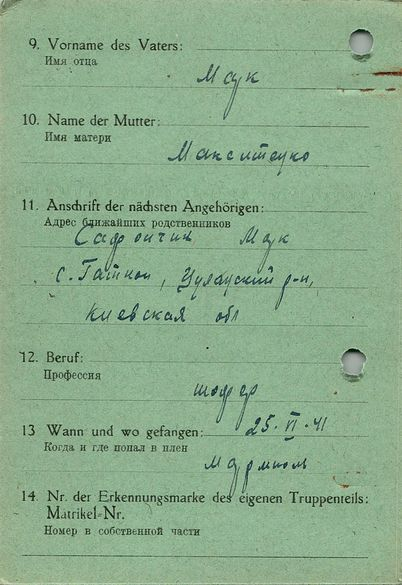 9. Vorname des Vaters:
Имя отца
Мак
10. Name der Mutter:
Имя матери
11. Anschrift der nächsten Angehörigen:
Адрес ближайших родственников
Сафончик Мак
с. р-н,
Киевская обл
12. Beruf:
Профессия
шофер
13 Wann und wo gefangen: 25. VI. 41
Когда и где попал в плен
14. Nr. der Erkennungsmarke des eigenen Truppenteils:
Matrikel-Nr.
Номер в собственной части